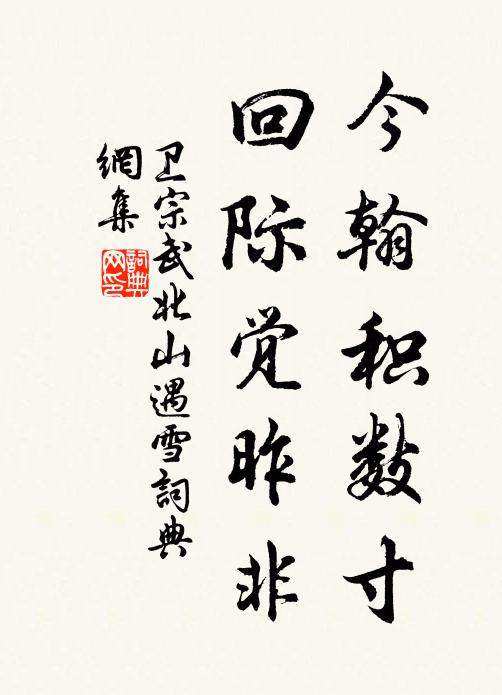 今翰积数寸
回际觉昨非
卫宗武北山遇雪詞典
網集
詞典網印